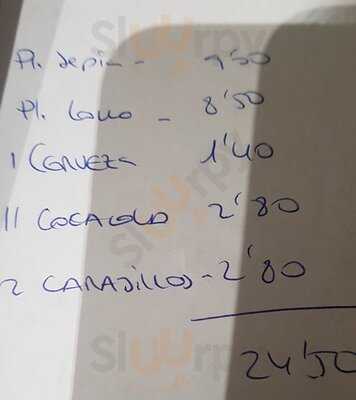 Pl. Sepia - 9'50
Pl. Lomo - 8'50
1 CERVEZA 1'40
11 COCACOLA 2'80
2 CARAJILLOS - 2'80
24'50
Sluurpy
Sluurpy
Sluurpy